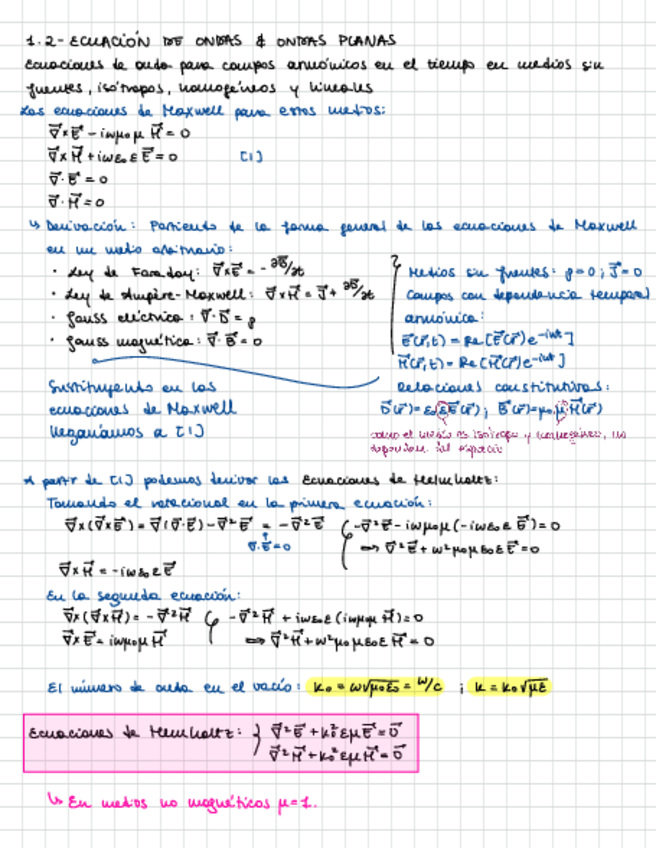 1.2- ECUACIÓN DE ONDAS & ONDAS PLANAS
Ecuaciones de onda para campos armónicos en el tiempo en medios sin
fuentes, isótropos, homogéneos y lineales
Las ecuaciones de Maxwell para estos medios:
∇⃗×E⃗ - iωμ₀μ H⃗ = 0
∇⃗×H⃗ + iωε₀ε E⃗ = 0 [1]
∇⃗·E⃗ = 0
∇⃗·H⃗ = 0
↳ Derivación: Partiendo de la forma general de las ecuaciones de Maxwell
en un medio arbitrario:
· Ley de Faraday: ∇⃗×E⃗ = -∂B⃗/∂t
· Ley de Ampère-Maxwell: ∇⃗×H⃗ = J⃗ + ∂D⃗/∂t
· Gauss eléctrica: ∇⃗·D⃗ = ρ
· Gauss magnética: ∇⃗·B⃗ = 0
Medios sin fuentes: ρ=0; J⃗=0
Campos con dependencia temporal
armónica:
E⃗(r⃗,t) = Re[E⃗(r⃗)e^-iωt]
H⃗(r⃗,t) = Re[H⃗(r⃗)e^-iωt]
Relaciones constitutivas:
D⃗(r⃗)=ε₀εE⃗(r⃗); B⃗(r⃗)=μ₀μH⃗(r⃗)
como el medio es isótropo y homogéneo, no
dependen del espacio
Sustituyendo en las
ecuaciones de Maxwell
llegaríamos a [1]
A partir de [1] podemos derivar las Ecuaciones de Helmholtz:
Tomando el rotacional en la primera ecuación:
∇⃗×(∇⃗×E⃗) = ∇⃗(∇⃗·E⃗) - ∇⃗²E⃗ = -∇⃗²E⃗
∇⃗·E⃗=0
∇⃗×H⃗ = -iωε₀εE⃗
-∇⃗²E⃗ - iωμ₀μ(-iωε₀ε E⃗) = 0
⇒ ∇⃗²E⃗ + ω²μ₀με₀ε E⃗ = 0
En la segunda ecuación:
∇⃗×(∇⃗×H⃗) = -∇⃗²H⃗
∇⃗×E⃗ = iωμ₀μ H⃗
-∇⃗²H⃗ + iωε₀ε(iωμ₀μ H⃗) = 0
⇒ ∇⃗²H⃗ + ω²μ₀με₀ε H⃗ = 0
El número de onda en el vacío: k₀ = ω√μ₀ε₀ = ω/c ; k = k₀√με
Ecuaciones de Helmholtz: } ∇⃗²E⃗ + k₀²εμE⃗ = 0⃗
∇⃗²H⃗ + k₀²εμH⃗ = 0⃗
↳ En medios no magnéticos μ=1.